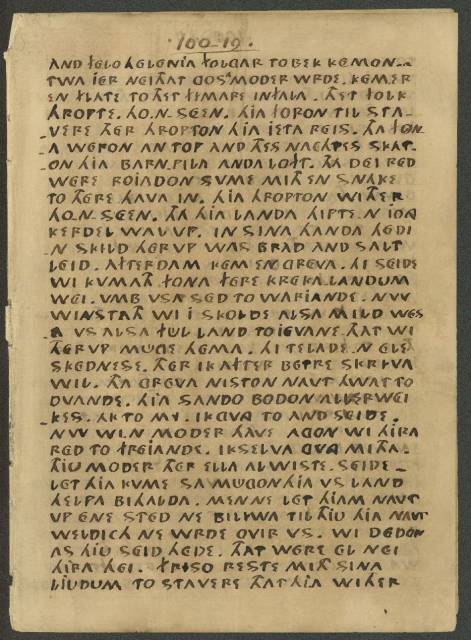 100-19.
AND FELO HELENIA FOLGAR TOBEK KEMON.
TWA IER NEI THAT GOSA MODER WRDE. KEM ER
EN FLATE TO THET FLIMARE IN FALA. THET FOLK
HROPTE. HO.N.SEEN. HIA FORON TIL STA-
VERE THER HROPTON HIA IETA REIS. THA FON-
A WERON AN TOP AND THES NACHTES SKAT-
ON HIA BARN PILA ANDA LOFT. THA DEI RED
WERE ROIADON SVME MITH EN SNAKE
TO THERE HAVA IN. HIA HROPTON WITHER
HO.N.SEEN. THA HIA LANDA HIPTE.N IONG
KERDEL WAL VP. IN SINA HANDA HEDI
N SKILD THERVP WAS BRAD AND SALT
LEID. AFTERDAM KEM EN GREVA. HI SEIDE
WI KVMATH FONA FERE KREKALANDUM
WEI. VMB VSA SED TO WARIANDE. NVW
WINSTATH WI I SKOLDE ALSA MILD WES
A VS ALSA FUL LAND TO IEVANE THAT WI
THERVP MUGE HEMA. HI TELADE.N ELE
SKEDNESE. THER IK AFTER BETRE SKRIVA
WIL. THA GREVA NISTON NAVT HWAT TO
DVANDE. HIA SANDO BODON ALLERWEI
KES. AK TO MY. IK GVNG TO AND SEIDE.
NVW WI.N MODER HAVE AGON WI HIRA
RED TO FREIANDE. IKSELVA GVNG MITHA.
THIU MODER THER ELLA AL WISTE. SEIDE
LET HIA KVME SA MUGON HIA VS LAND
HELPA BIHALDA. MEN NE LET HIAM NAVT
VP ENE STED NE BILIWA TIL THIU HIA NAVT
WELDICH NE WRDE OVIR VS. WI DEDON
AS HIU SEID HEDE. THAT WERE EL NEI
HIRA HEI. FRISO RESTE MITH SINA
LIUDUM TO STAVERE THAT HIA WITHER